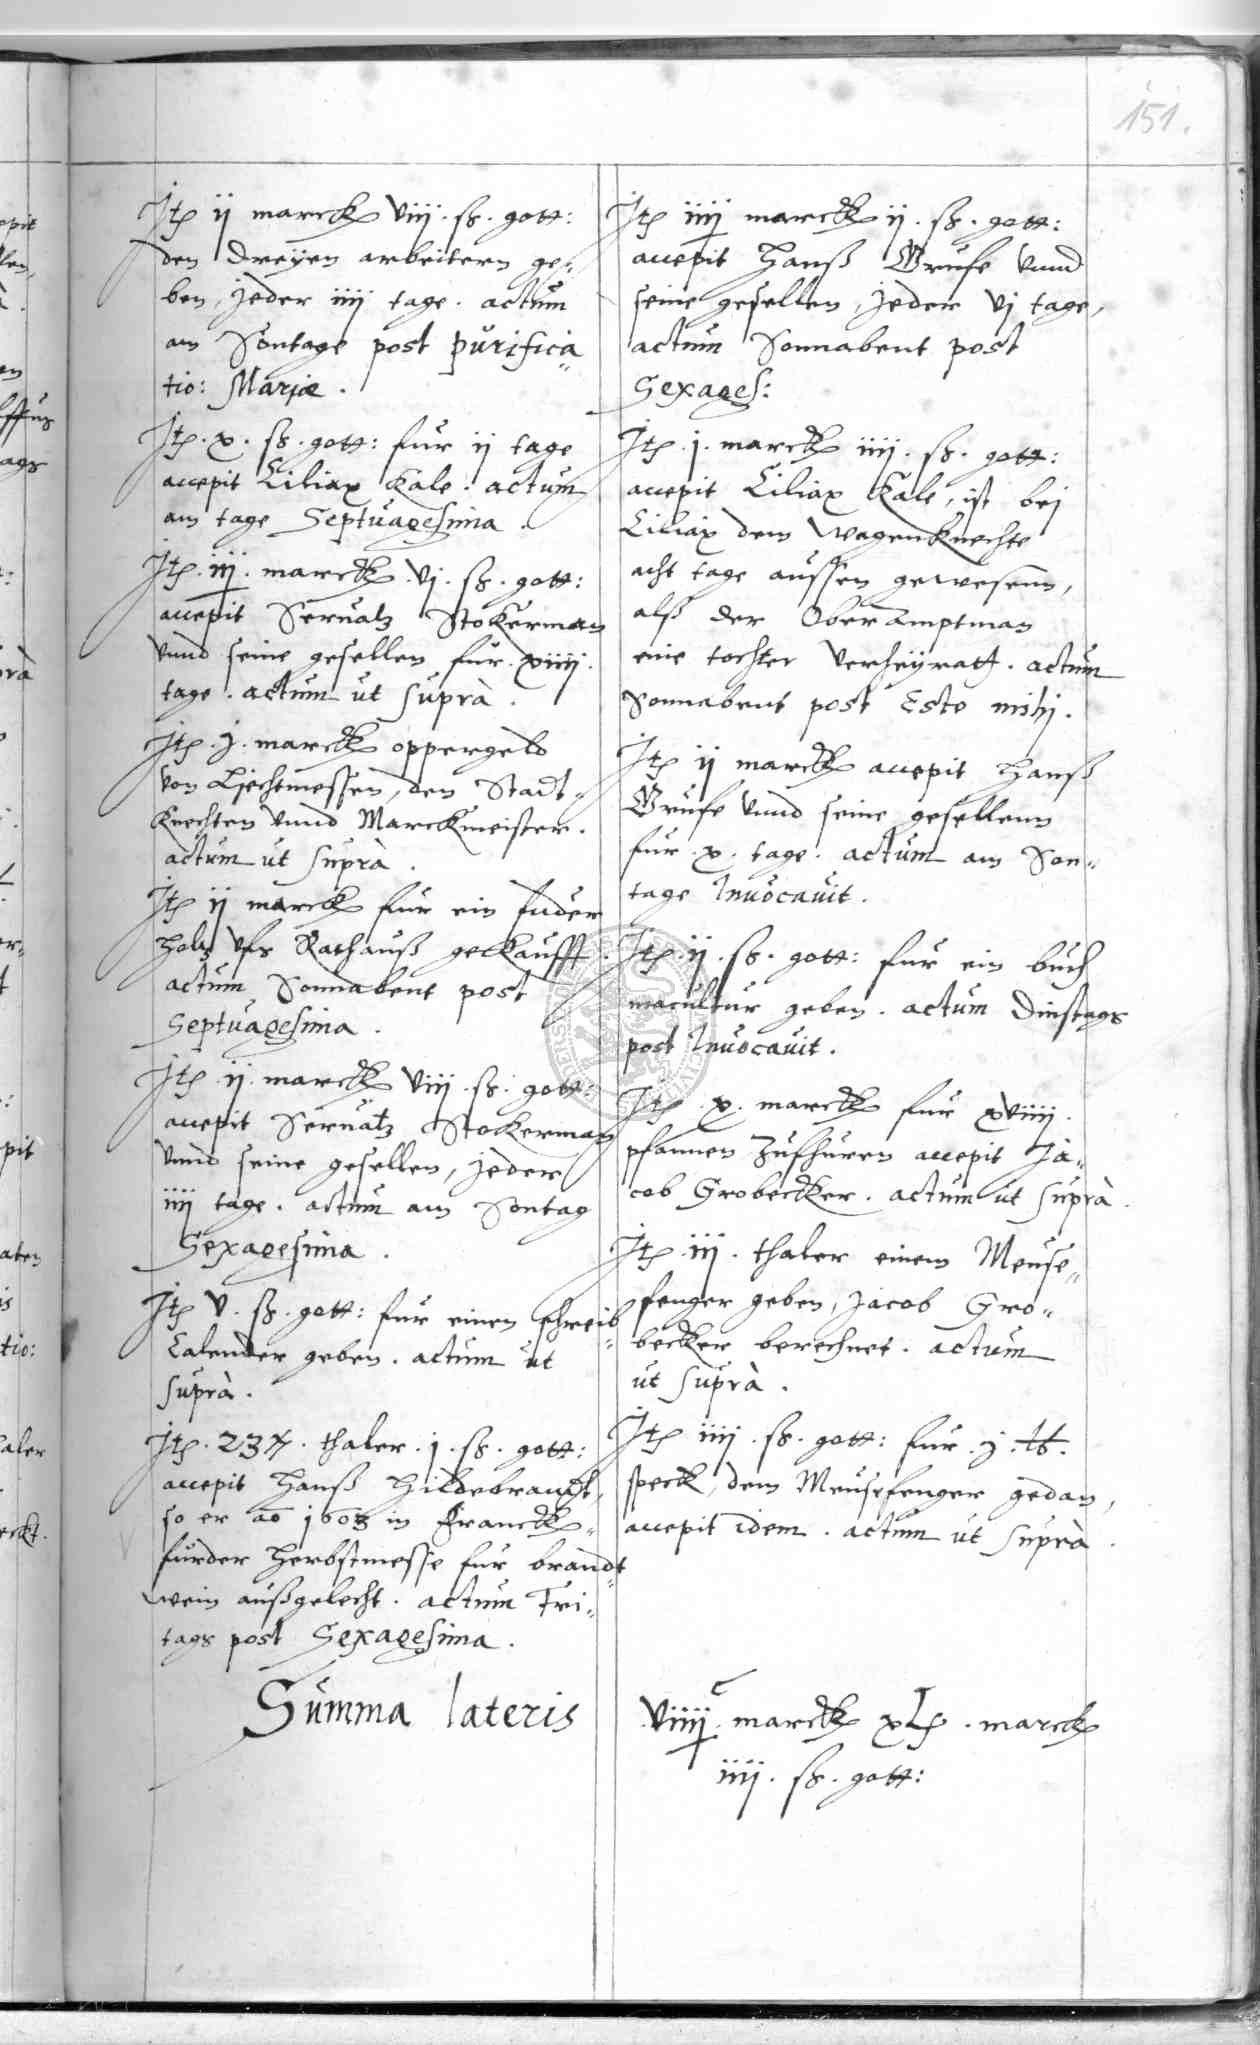 151.
Jtp ij marck viij. sh. gott:
den dreÿen arbeitern ge-
ben, jeder iiij tage. actum
am Sontage post purifica-
tio: Mariæ.
Jtp. x. sh. gott: fur ij tage
accepit Ciliax Kale. actum
am tage Septuagesima.
Jtp. iij. marck vj. sh. gott:
accepit Seruatz Stokerman
vnnd seine gesellen fur. xiiij.
tage. actum ut suprà.
Jtp. j. marck oppergeld
von Liechtmessen, den Stadt-
knechten vnnd Marckmeister.
actum ut suprà.
Jtp ij marck fur ein fuder
holtz vfs Rathauß gekaufft.
actum Sonnabent post
Septuagesima.
Jtp ij. marck viij. sh. gott:
accepit Seruatz Stockerman
vnnd seine gesellen, jeder
iiij tage. actum am Sontag
Sexagesima.
Jtp v. sh. gott: fur einen schreib-
Calender geben. actum ut
suprà.
Jtp. 237. thaler. j. sh. gott:
accepit Hanß Hildebrandt,
so er aō 1603 in Franck-
furder Herbstmesse fur brandt-
wein außgelecht. actum Fri-
tags post Sexagesima.
Jtp iiij marck ij. sh. gott:
accepit Hanß Grufe vnnd
seine gesellen, jeder vj tage,
actum Sonnabent post
Sexages:
Jtp. j. marck iiij. sh. gott:
accepit Ciliax Kale, ist bej
Ciliax dem Wagenknechte
acht tage aussen gewesenn,
alß der Oberamptman
eine tochter verheÿrath. actum
Sonnabent post Esto mihj.
Jtp ij marck accepit Hanß
Grufe vnnd seine gesellenn
fur. x. tage. actum am Son-
tage Inuocauit.
Jtp. ij. sh. gott: fur ein buch
macultur geben. actum Dinstags
post Inuocauit.
Jtp. x. marck fur xviiij.
pfannen Zufhuren accepit Ja-
cob Grobecker. actum ut suprà.
Jtp. iij. thaler einem Meuse-
fenger geben, Jacob Gro-
becker berechnet. actum
ut suprà.
Jtp iiij. sh. gott: fur. j. lb.
speck, dem Meusefenger gedan,
accepit idem. actum ut suprà.
Summa lateris
viiij c. marck xlj. marck
iiij. sh. gott: